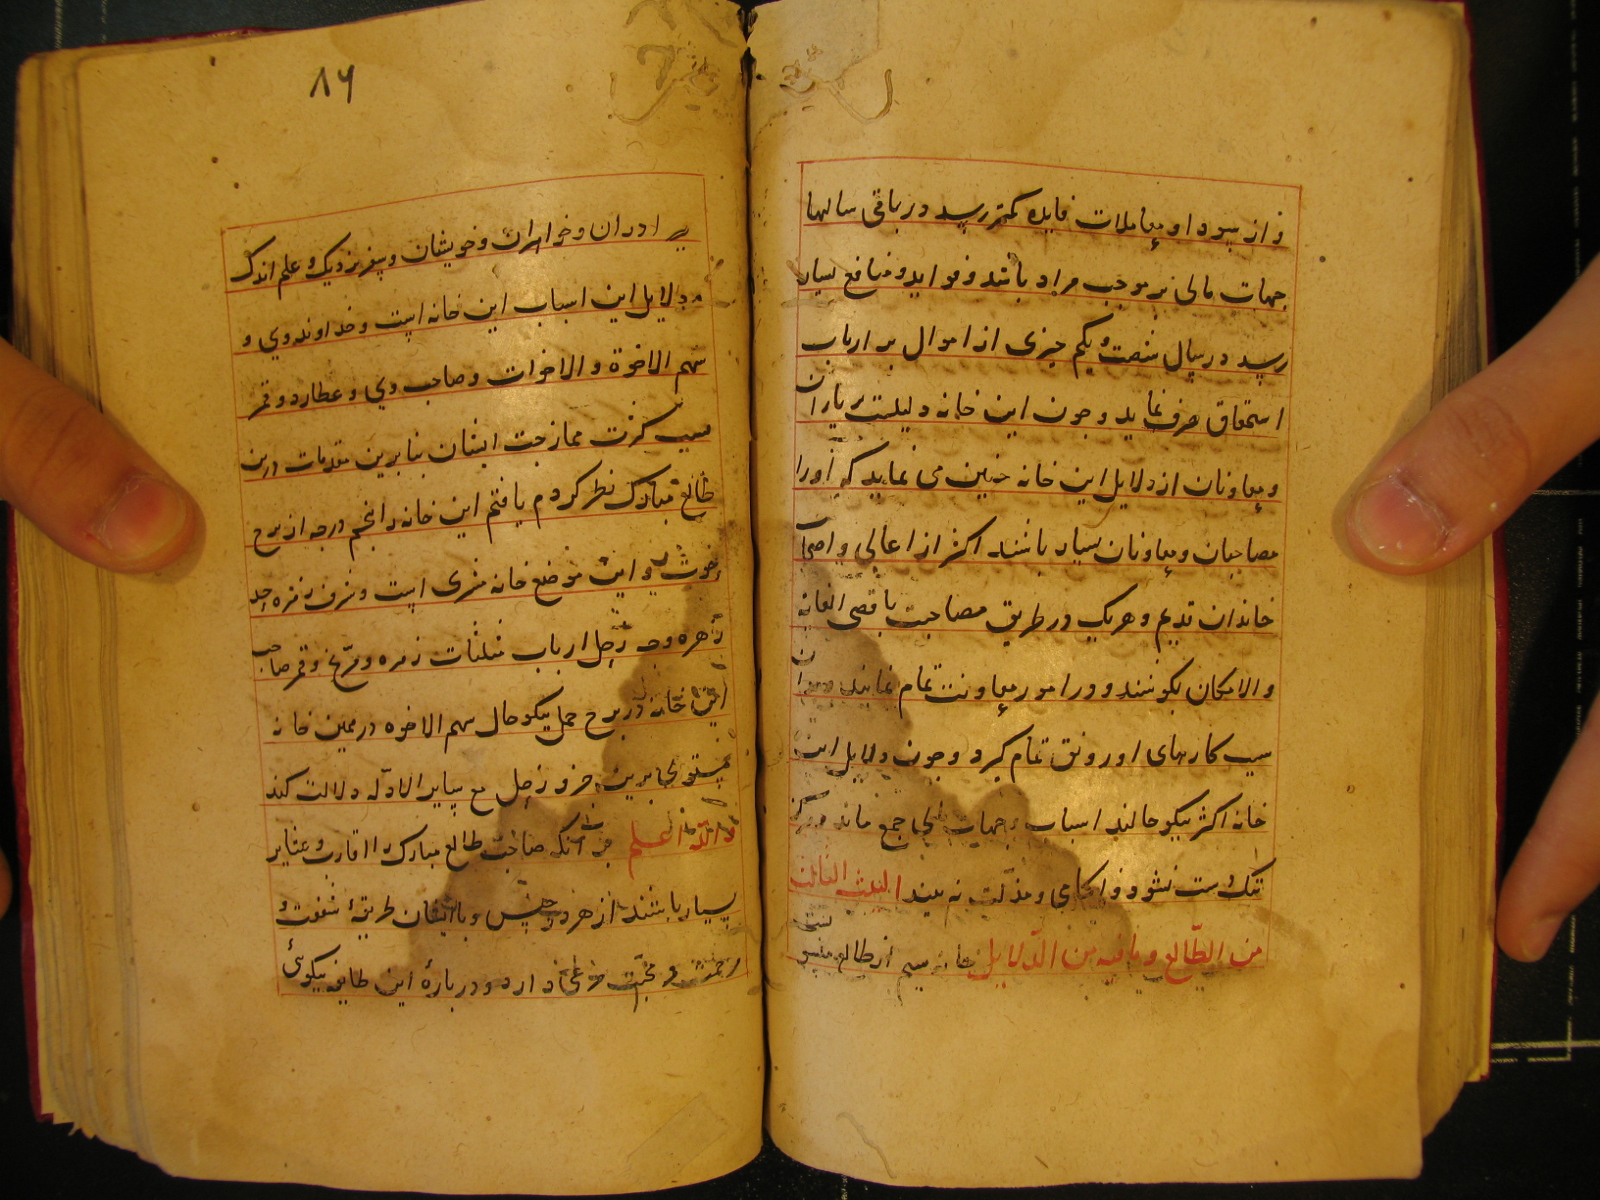 و از سودا و معاملات فایده کمتر رسد در باقی سالها
جهات مالی بر موجب مراد باشد و فواید و منافع بسیار
رسد در سال شصت و یکم چیزی از اموال بر ارباب
استحقاق صرف نماید و چون این خانه دلیلست بر یاران
و معاونان از دلایل این خانه چنین می نماید که او را
مصاحبان و معاونان بسیار باشند اکثر از اعالی و اصحاب
خاندان قدیم و هریک در طریق مصاحبت باقصی الغایة
والامکان بکوشند و در امور معاونت تمام نمایند
سبب کارهای او رونق تمام گیرد و چون دلایل این
خانه اکثر نیکو حالند اسباب و جهات جمع ماند و هرگز
تنک دست نشود و ناکامی و مذلت نه بیند البیت الثالث
من الطالع و مافیه من الدلایل خانه سیم از طالع
۸۶
برادران و خواهران و خویشان و سفر نزدیک و علم اندک
و دلایل این اسباب این خانه است و خداوند وی و
سهم الاخوة و الاخوات و صاحب وی و عطارد و قمر
بسبب کثرت ممازجت ایشان بنابرین مقدمات درین
طالع مبارک نظر کردم یافتم این خانه را پنجم درجه از برج
حوت و این موضع خانه مشتری است و شرف زهره وحد
زهره و وجه زحل ارباب مثلثات زهره و مریخ و قمر صاحب
این خانه در برج حمل نیکو حال سهم الاخوه در همین خانه
مستولی برین جزو زحل مع سایر الادله دلالت کند
والله اعلم بر آنکه صاحب طالع مبارک را اقارب و عشایر
بسیار باشند از هر دو جنس و با ایشان طریقهٔ شفقت و
مرحمت و محبت مرعی دارد و دربارهٔ این طایفه نیکوئی